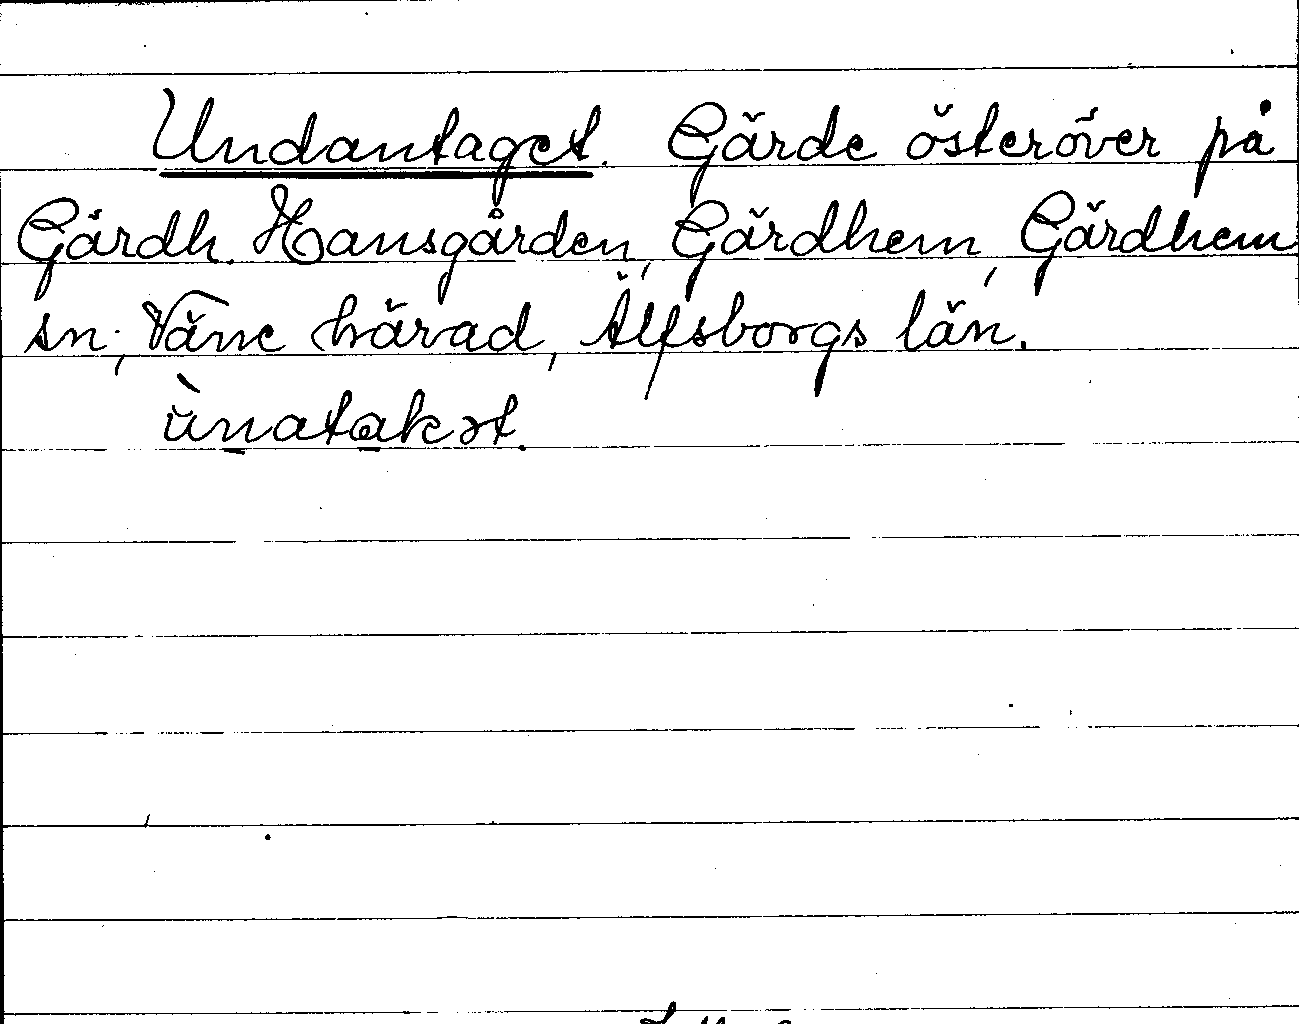 Undantaget. Gärde österöver på
Gärdh. Hansgården, Gärdhem, Gärdhem
sn; Väne härad, Älfsborgs län.
ùnatakət.